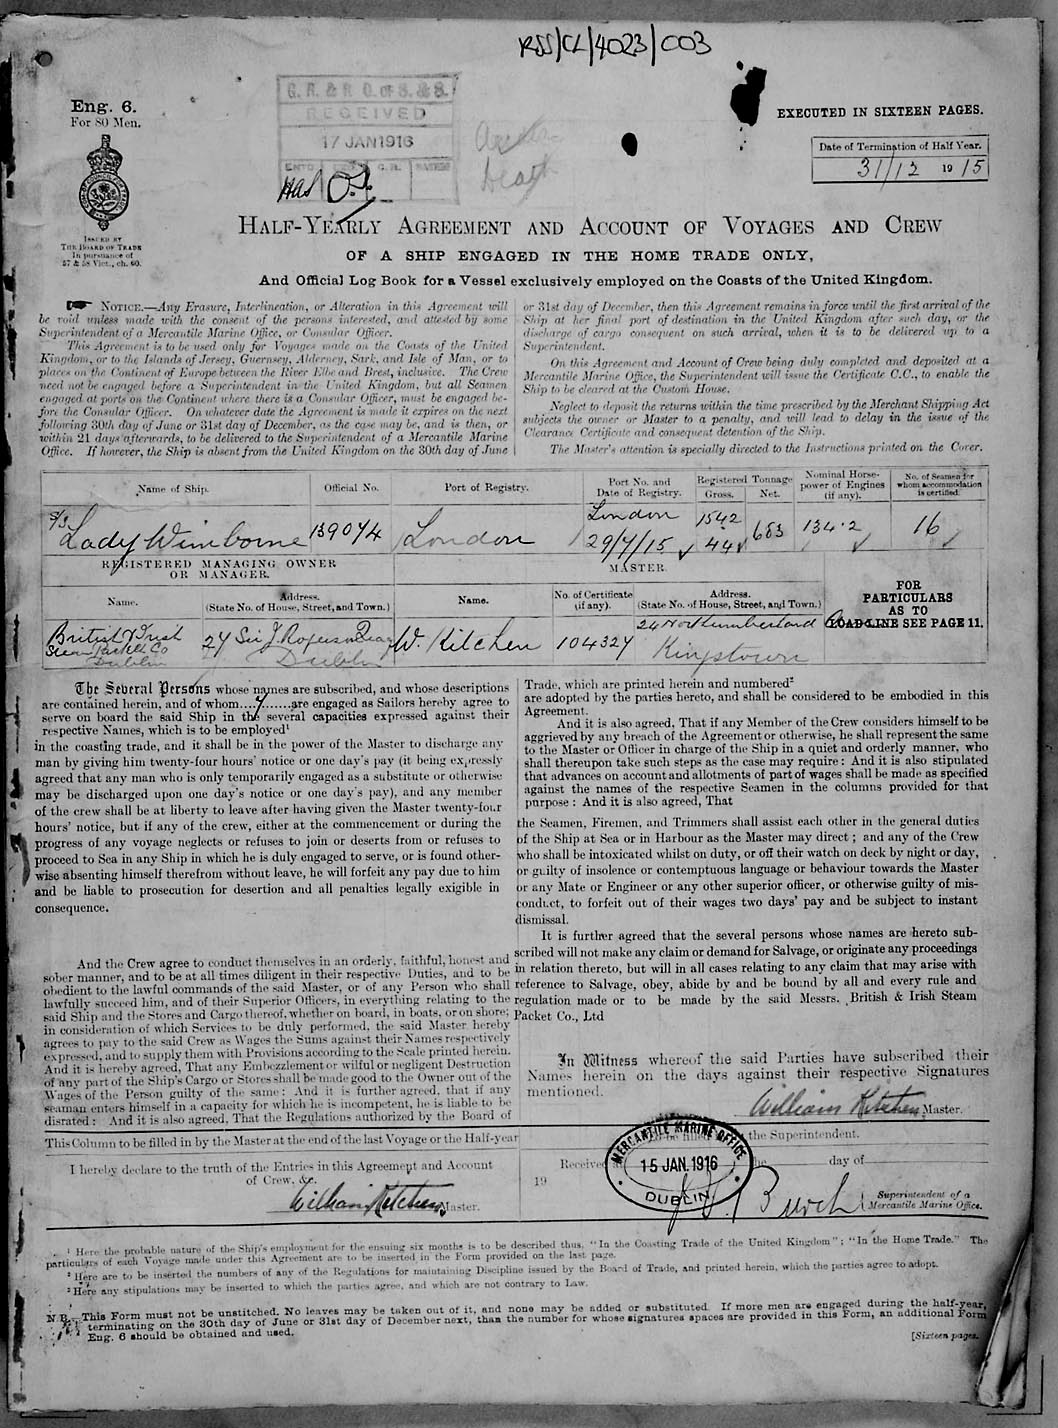 RSS/CL/4023/003
Eng. 6.
For 80 Men.
ISSUED BY
THE BOARD OF TRADE
In pursuance of
57 & 58 Vict., ch. 60.
G. R. & R. O. of S. & S.
RECEIVED
17 JAN 1916
Has O.L.
EXECUTED IN SIXTEEN PAGES.
Date of Termination of Half Year.
31/12 1915
HALF-YEARLY AGREEMENT AND ACCOUNT OF VOYAGES AND CREW
OF A SHIP ENGAGED IN THE HOME TRADE ONLY,
And Official Log Book for a Vessel exclusively employed on the Coasts of the United Kingdom.
NOTICE.—Any Erasure, Interlineation, or Alteration in this Agreement will
be void unless made with the consent of the persons interested, and attested by some
Superintendent of a Mercantile Marine Office, or Consular Officer.
This Agreement is to be used only for Voyages made on the Coasts of the United
Kingdom, or to the Islands of Jersey, Guernsey, Alderney, Sark, and Isle of Man, or to
places on the Continent of Europe between the River Elbe and Brest, inclusive. The Crew
need not be engaged before a Superintendent in the United Kingdom, but all Seamen
engaged at ports on the Continent where there is a Consular Officer, must be engaged be-
fore the Consular Officer. On whatever date the Agreement is made it expires on the next
following 30th day of June or 31st day of December, as the case may be, and is then, or
within 21 days afterwards, to be delivered to the Superintendent of a Mercantile Marine
Office. If however, the Ship is absent from the United Kingdom on the 30th day of June
or 31st day of December, then this Agreement remains in force until the first arrival of the
Ship at her final port of destination in the United Kingdom after such day, or the
discharge of cargo consequent on such arrival, when it is to be delivered up to a
Superintendent.
On this Agreement and Account of Crew being duly completed and deposited at a
Mercantile Marine Office, the Superintendent will issue the Certificate C.C., to enable the
Ship to be cleared at the Custom House.
Neglect to deposit the returns within the time prescribed by the Merchant Shipping Act
subjects the owner or Master to a penalty, and will lead to delay in the issue of the
Clearance Certificate and consequent detention of the Ship.
The Master's attention is specially directed to the Instructions printed on the Cover.
Name of Ship. Official No. Port of Registry. Port No. and Date of Registry. Registered Tonnage Gross. Net. Nominal Horse-power of Engines (if any). No. of Seamen for whom accommodation is certified.
S/S Lady Wimborne 139074 London London 29/7/15 1542 44 683 134.2 16
REGISTERED MANAGING OWNER
OR MANAGER.
MASTER.
Name. Address. (State No. of House, Street, and Town.) Name. No. of Certificate (if any). Address. (State No. of House, Street, and Town.)
FOR
PARTICULARS
AS TO
LOAD-LINE SEE PAGE 11.
British & Irish Steam Packet Co Dublin 27 Sir J. Rogerson Quay Dublin W. Kitchen 104327 24 Northumberland Kingstown
The Several Persons whose names are subscribed, and whose descriptions
are contained herein, and of whom....7.......are engaged as Sailors hereby agree to
serve on board the said Ship in the several capacities expressed against their
respective Names, which is to be employed¹
in the coasting trade, and it shall be in the power of the Master to discharge any
man by giving him twenty-four hours' notice or one day's pay (it being expressly
agreed that any man who is only temporarily engaged as a substitute or otherwise
may be discharged upon one day's notice or one day's pay), and any member
of the crew shall be at liberty to leave after having given the Master twenty-four
hours' notice, but if any of the crew, either at the commencement or during the
progress of any voyage neglects or refuses to join or deserts from or refuses to
proceed to Sea in any Ship in which he is duly engaged to serve, or is found other-
wise absenting himself therefrom without leave, he will forfeit any pay due to him
and be liable to prosecution for desertion and all penalties legally exigible in
consequence.
And the Crew agree to conduct themselves in an orderly, faithful, honest and
sober manner, and to be at all times diligent in their respective Duties, and to be
obedient to the lawful commands of the said Master, or of any Person who shall
lawfully succeed him, and of their Superior Officers, in everything relating to the
said Ship and the Stores and Cargo thereof, whether on board, in boats, or on shore;
in consideration of which Services to be duly performed, the said Master hereby
agrees to pay to the said Crew as Wages the Sums against their Names respectively
expressed, and to supply them with Provisions according to the Scale printed herein.
And it is hereby agreed, That any Embezzlement or wilful or negligent Destruction
of any part of the Ship's Cargo or Stores shall be made good to the Owner out of the
Wages of the Person guilty of the same: And it is further agreed, that if any
seaman enters himself in a capacity for which he is incompetent, he is liable to be
disrated: And it is also agreed, That the Regulations authorized by the Board of
Trade, which are printed herein and numbered²
are adopted by the parties hereto, and shall be considered to be embodied in this
Agreement.
And it is also agreed, That if any Member of the Crew considers himself to be
aggrieved by any breach of the Agreement or otherwise, he shall represent the same
to the Master or Officer in charge of the Ship in a quiet and orderly manner, who
shall thereupon take such steps as the case may require: And it is also stipulated
that advances on account and allotments of part of wages shall be made as specified
against the names of the respective Seamen in the columns provided for that
purpose: And it is also agreed, That
the Seamen, Firemen, and Trimmers shall assist each other in the general duties
of the Ship at Sea or in Harbour as the Master may direct; and any of the Crew
who shall be intoxicated whilst on duty, or off their watch on deck by night or day,
or guilty of insolence or contemptuous language or behaviour towards the Master
or any Mate or Engineer or any other superior officer, or otherwise guilty of mis-
conduct, to forfeit out of their wages two days' pay and be subject to instant
dismissal.
It is further agreed that the several persons whose names are hereto sub-
scribed will not make any claim or demand for Salvage, or originate any proceedings
in relation thereto, but will in all cases relating to any claim that may arise with
reference to Salvage, obey, abide by and be bound by all and every rule and
regulation made or to be made by the said Messrs. British & Irish Steam
Packet Co., Ltd
In Witness whereof the said Parties have subscribed their
Names herein on the days against their respective Signatures
mentioned.
William Kitchen, Master.
This Column to be filled in by the Master at the end of the last Voyage or the Half-year
I hereby declare to the truth of the Entries in this Agreement and Account
of Crew, &c.
William Kitchen Master.
to be filled in by the Superintendent.
Received the day of
19
MERCANTILE MARINE OFFICE
15 JAN. 1916
DUBLIN
Burch
Superintendent of a
Mercantile Marine Office.
¹ Here the probable nature of the Ship's employment for the ensuing six months is to be described thus, "In the Coasting Trade of the United Kingdom"; "In the Home Trade." The
particulars of each Voyage made under this Agreement are to be inserted in the Form provided on the last page.
² Here are to be inserted the numbers of any of the Regulations for maintaining Discipline issued by the Board of Trade, and printed herein, which the parties agree to adopt.
³ Here any stipulations may be inserted to which the parties agree, and which are not contrary to Law.
N.B.—This Form must not be unstitched. No leaves may be taken out of it, and none may be added or substituted. If more men are engaged during the half-year,
terminating on the 30th day of June or 31st day of December next, than the number for whose signatures spaces are provided in this Form, an additional Form
Eng. 6 should be obtained and used.
[Sixteen pages.